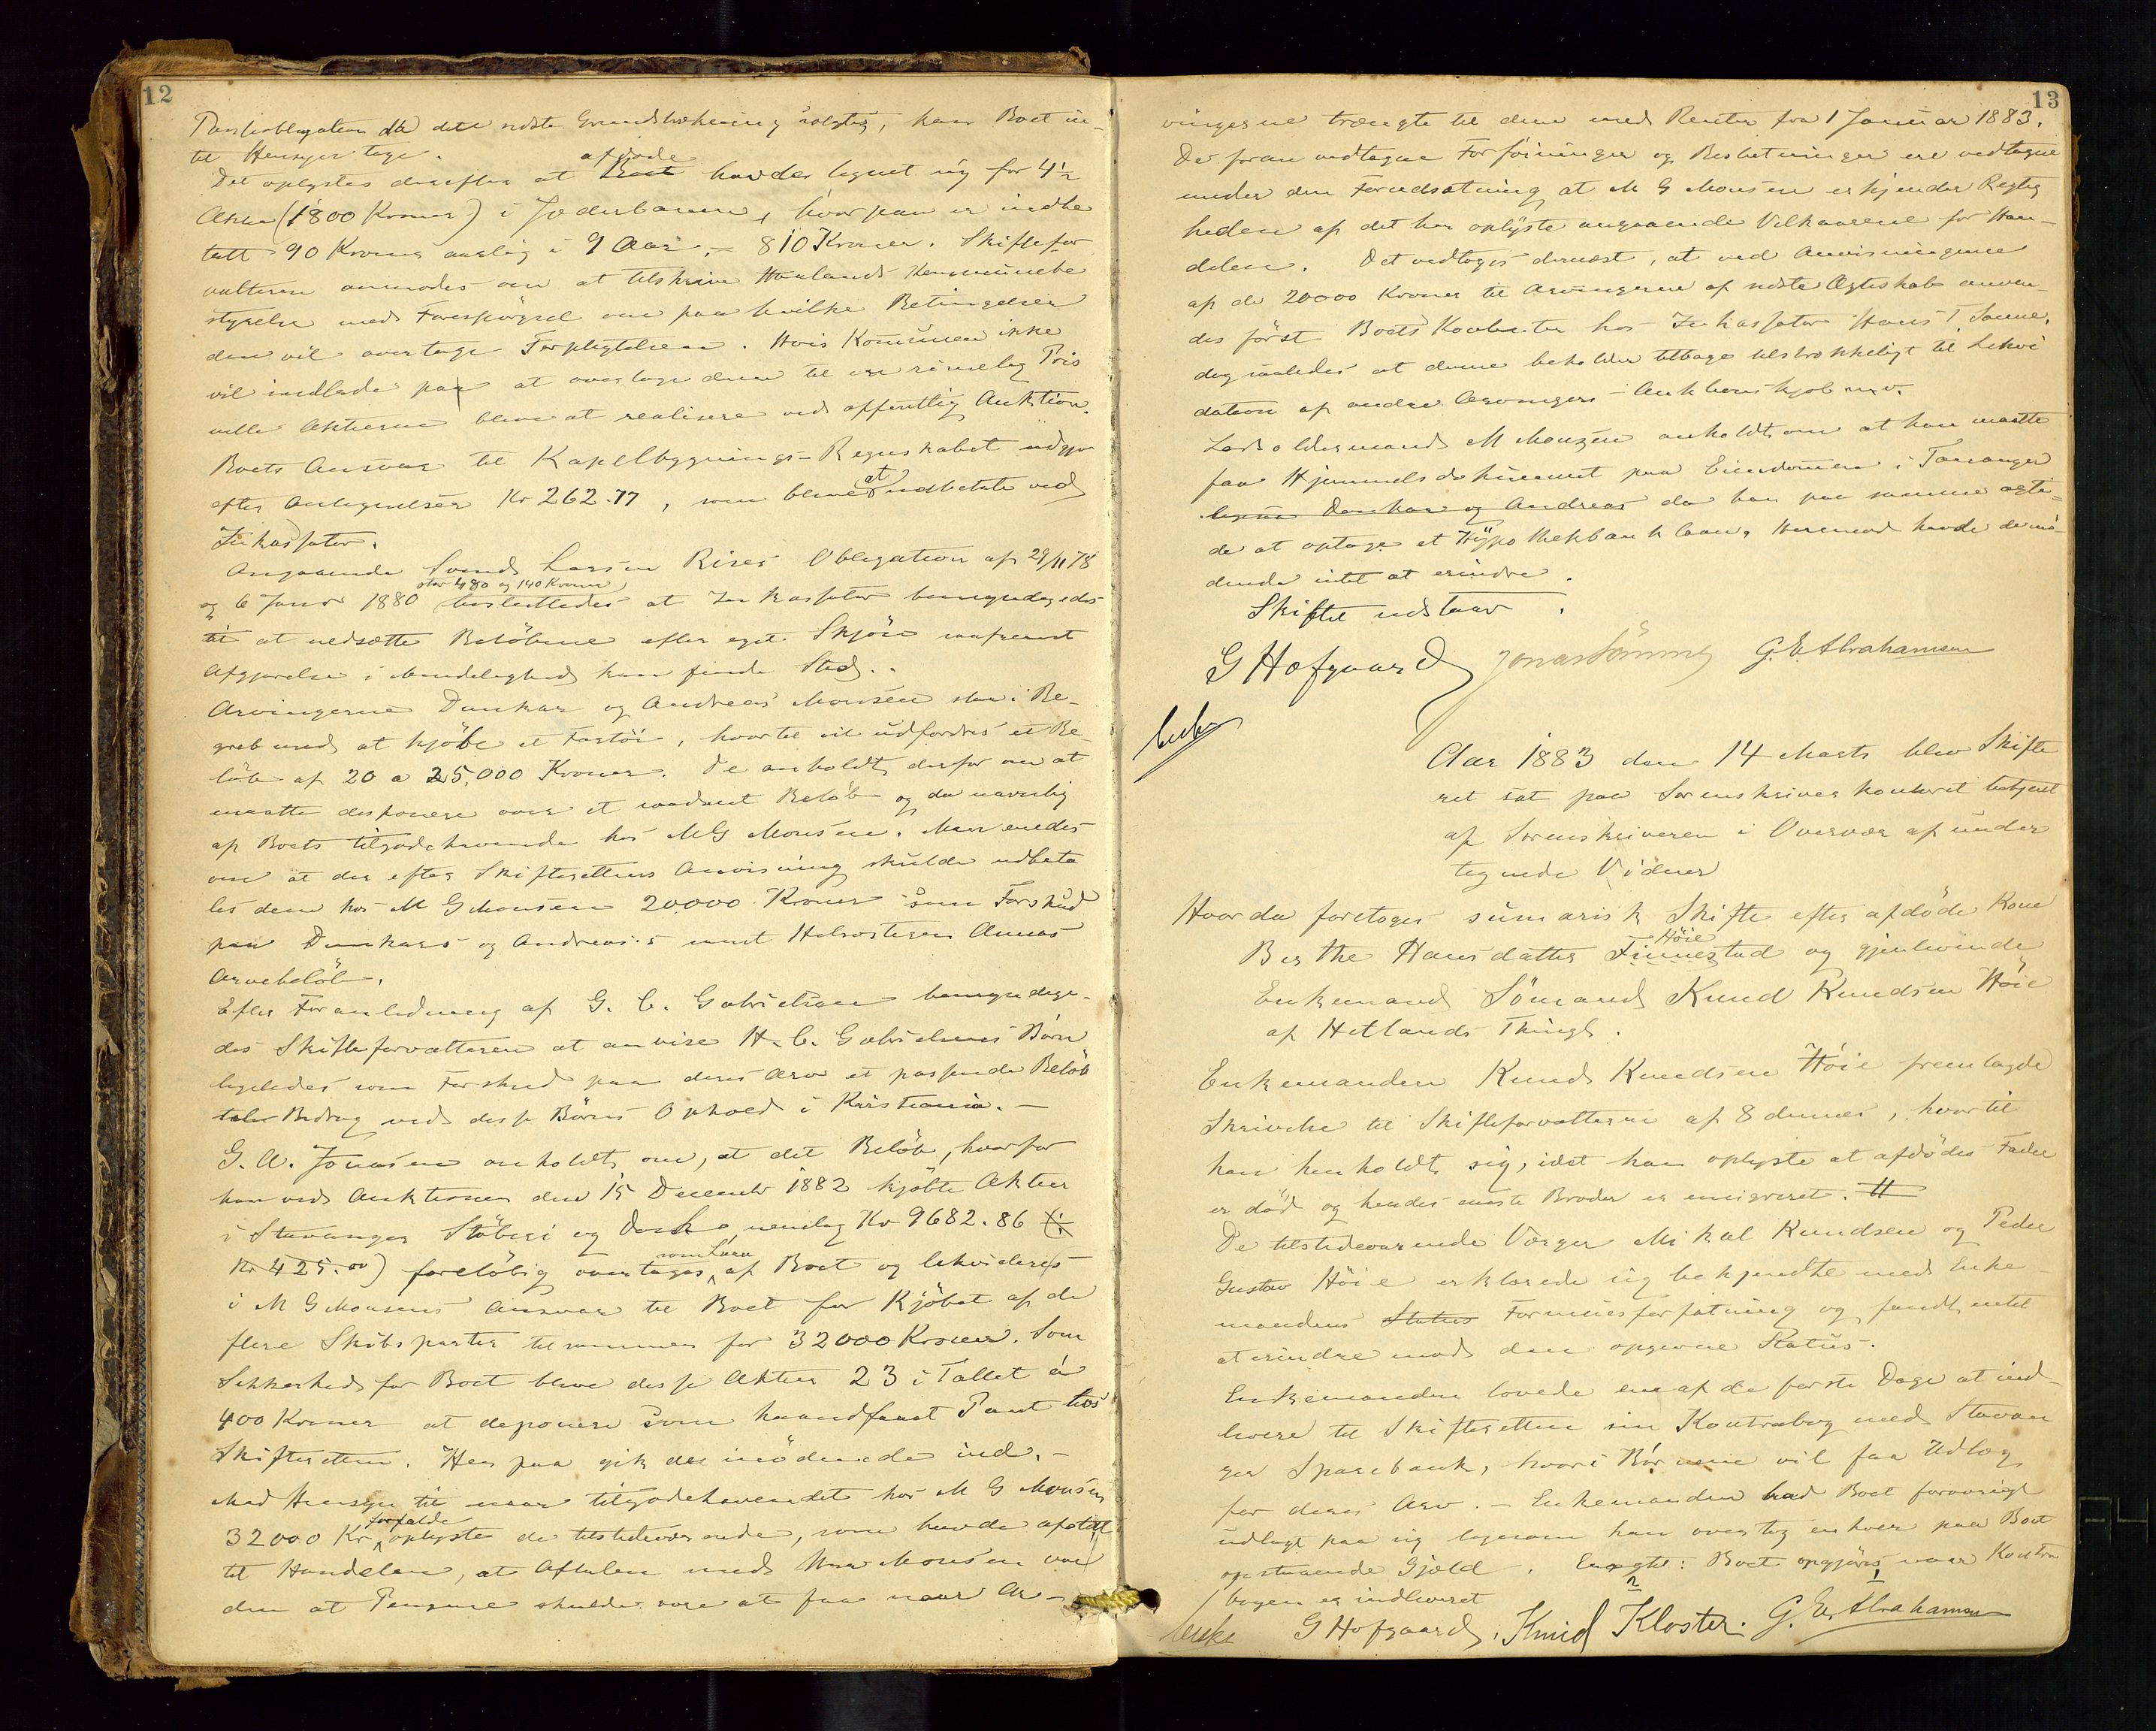 12
Panteobligation da det sidste Grundstrækning solgtes, kan Boet in-
tet Hensyn tage.
Det oplystes derefter at afdøde havde tegnet sig for 4½
Aktie (1800 Kroner) i Jæderbanen, hvorpaa er indbe
talt 90 Kroner aarlig i 9 Aar = 810 Kroner. Skiftefor
valteren anmodes om at tilskrive Haalands Kommunebe
styrelse med Forespørgsel om paa hvilke Betingelser
den vil overtage Forpligtelsen. Hvis Kommunen ikke
vil indlade paa at overtage dem til en rimelig Pris
ville Aktierne blive at realisere ved offentlig Auktion.
Boets Ansvar til Kapelbygnings-Regnskabet udgjør
efter Antegnelser Kr 262.77, som bliver at udbetale ved
Inkassator.
Angaaende Svend Larsen Rises Obligation af 29/11 78
og 6 Januar 1880 stor 480 og 140 Kroner besluttedes at Inkassator bemyndigedes
til at nedsætte Beløbene efter eget Skjøn saafremt
Afgjørelse i Mindelighed kan finde Sted.
Arvingerne Dunkar og Andreas Monsen staa i Be-
greb med at kjøbe et Fartöi, hvortil vil udfordres et Be-
løb af 20 a 25,000 Kroner. De anholdt derfor om at
maatte disponere over et saadant Beløb og da navnlig
af Boets tilgodehavende hos M G Monsen. Man enedes
om at der efter Skifterettens Anvisning skulde udbeta
les dem hos M G Monsen 20000 Kroner som Forskud
paa Dunkars og Andreas's samt Helsøsteren Annas
Arvebeløb.
Efter Foranledning af G. C. Gabrielsen bemyndige-
des Skifteforvalteren at anvise H. C. Gabrielsens Børn
ligeledes som Forskud paa deres Arv et passende Beløb
Bidrag ved disse Børns Ophold i Kristiania. —
G. A. Jonasen anholdt om, at det Beløb, hvorfor
han ved Auktionen den 15 December 1882 kjøbte Aktier
i Stavanger Støberi og Dock, nemlig Kr 9682.86 (÷
Kr 425.00) foreløbig overtages som Laan af Boet og likvideres
i M G Monsens Ansvar til Boet for Kjøbet af de
flere Skibsparter tilsammen for 32000 Kroner. Som
Sikkerhed for Boet blive disse Aktier 23 i Tallet á
400 Kroner at deponere som haandfaaet Pant hos
Skifteretten. Her paa gik de mødende ind. —
Med Hensyn til naar tilgodehavendet hos M G Monsen
32000 Kr forfalder oplyste de tilstedeværende, som havde afsluttet
til Handelen, at Aftalen med Hr Monsen var
den at Pengene skulde være at faa naar Ar-
13
vingerne trængte til dem med Renter fra 1 Januar 1883.
De foran vedtagne Forføininger og Beslutninger ere vedtagne
under den Forudsætning at M G Monsen erkjender Rigtig
heden af det her oplyste angaaende Vilkaarene for Han-
delen. Det vedtoges dernæst, at ved Anvisningerne
af de 20000 Kroner til Arvingerne af sidste Ægteskab anven-
des først Boets Kontanter hos Inkassator Hans T Sømme,
dog saaledes at denne beholder tilbage tilstrækkeligt til Likvi
dation af andre Arvingers Auktionskjøb m.v.
Lods oldermand M Monsen anholdt om at han maatte
faa Hjemmelsdokument paa Eiendommen i Tananger
ligesom Dunkar og Andreas da han paa samme agte-
de at optage et Hypothekbank laan. Herimod havde de mø-
dende intet at erindre.
Skiftet udstaar.
G Hofgaard Jonas Sømme G. E. Abrahamsen
Aar 1883 den 14 Marts blev Skifte
ret sat paa Sorenskriverkontoret betjent
af Sorenskriveren i Overvær af under
tegnede Vidner
Hvorda foretoges summarisk Skifte efter afdøde Kone
Berthe Hansdatter Finnestad Høie og gjenlevende
Enkemand Sømand Knud Knudsen Høie
af Hetlands Thingl.
Enkemanden Knud Knudsen Høie fremlagde
Skrivelse til Skifteforvalteren af 8 dennes, hvortil
han henholdt sig, idet han oplyste at afdødes Fader
er død og hendes eneste Broder er emigreret.
De tilstedeværende Værger Mikal Knudsen og Peder
Gustav Høie erklærede sig bekjendte med Enke
mandens Status Formuesforfatning og fandt intet
at erindre mod den opgivne Status.
Enkemanden lovede en af de første Dage at ind-
levere til Skifteretten sin Kontrabog med Stavan
ger Sparebank, hvori Børnene vil faa Udlæg
for deres Arv. — Enkemanden bad Boet forøvrigt
udlagt paa sig ligesom han overtog enhver paa Boet
opstaaende Gjæld. Boet opgjøres, naar Kontra
bogen er indleveret
G Hofgaard, Knud Kloster. G. E. Abrahamsen